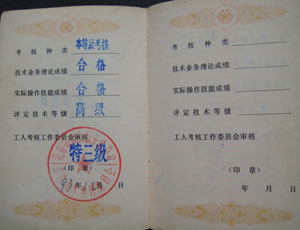 考核种类 本等级考核
技术业务理论成绩 合格
实际操作技能成绩 合格
评定技术等级 高级
工人考核工作委员会审核
特三级
（印章）
年 月 日
考核种类
技术业务理论成绩
实际操作技能成绩
评定技术等级
工人考核工作委员会审核
（印章）
年 月 日